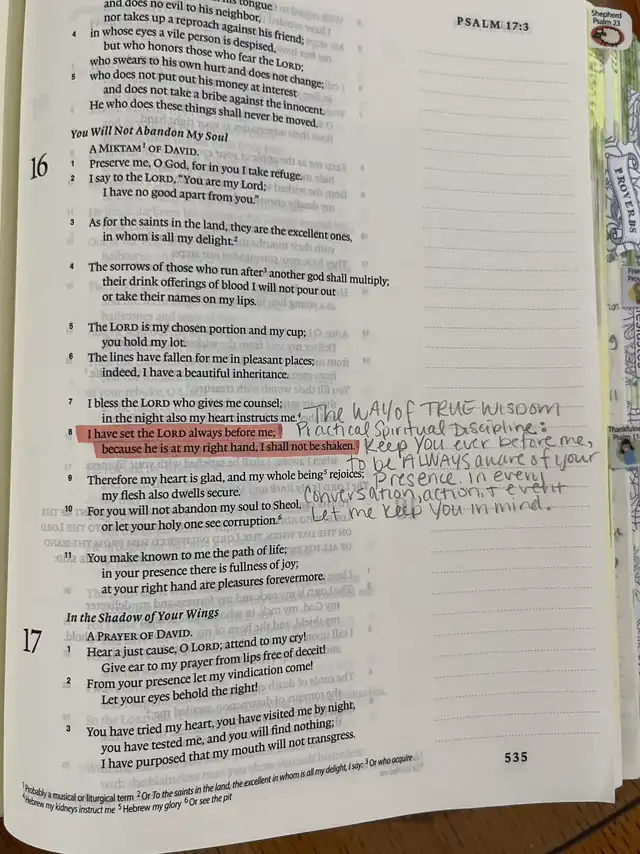 and does no evil to his neighbor,
nor takes up a reproach against his friend;
4 in whose eyes a vile person is despised,
but who honors those who fear the LORD;
who swears to his own hurt and does not change;
5 who does not put out his money at interest
and does not take a bribe against the innocent.
He who does these things shall never be moved.
PSALM 17:3
Shepherd
Psalm 23
PROVERBS
You Will Not Abandon My Soul
16 A MIKTAM¹ OF DAVID.
1 Preserve me, O God, for in you I take refuge.
2 I say to the LORD, "You are my Lord;
I have no good apart from you."
3 As for the saints in the land, they are the excellent ones,
in whom is all my delight.²
4 The sorrows of those who run after³ another god shall multiply;
their drink offerings of blood I will not pour out
or take their names on my lips.
5 The LORD is my chosen portion and my cup;
you hold my lot.
6 The lines have fallen for me in pleasant places;
indeed, I have a beautiful inheritance.
7 I bless the LORD who gives me counsel;
in the night also my heart instructs me.⁴
8 I have set the LORD always before me;
because he is at my right hand, I shall not be shaken.
9 Therefore my heart is glad, and my whole being⁵ rejoices;
my flesh also dwells secure.
10 For you will not abandon my soul to Sheol,
or let your holy one see corruption.⁶
11 You make known to me the path of life;
in your presence there is fullness of joy;
at your right hand are pleasures forevermore.
The WAY of TRUE WISDOM
Practical Spiritual Discipline:
Keep YOU ever before me,
to be ALWAYS aware of your
Presence. In every
conversation, action, + event
Let me keep you in mind.
In the Shadow of Your Wings
17 A PRAYER OF DAVID.
1 Hear a just cause, O LORD; attend to my cry!
Give ear to my prayer from lips free of deceit!
2 From your presence let my vindication come!
Let your eyes behold the right!
3 You have tried my heart, you have visited me by night,
you have tested me, and you will find nothing;
I have purposed that my mouth will not transgress.
535
¹ Probably a musical or liturgical term ² Or To the saints in the land, the excellent in whom is all my delight, I say: ³ Or who acquire
⁴ Hebrew my kidneys instruct me ⁵ Hebrew my glory ⁶ Or see the pit